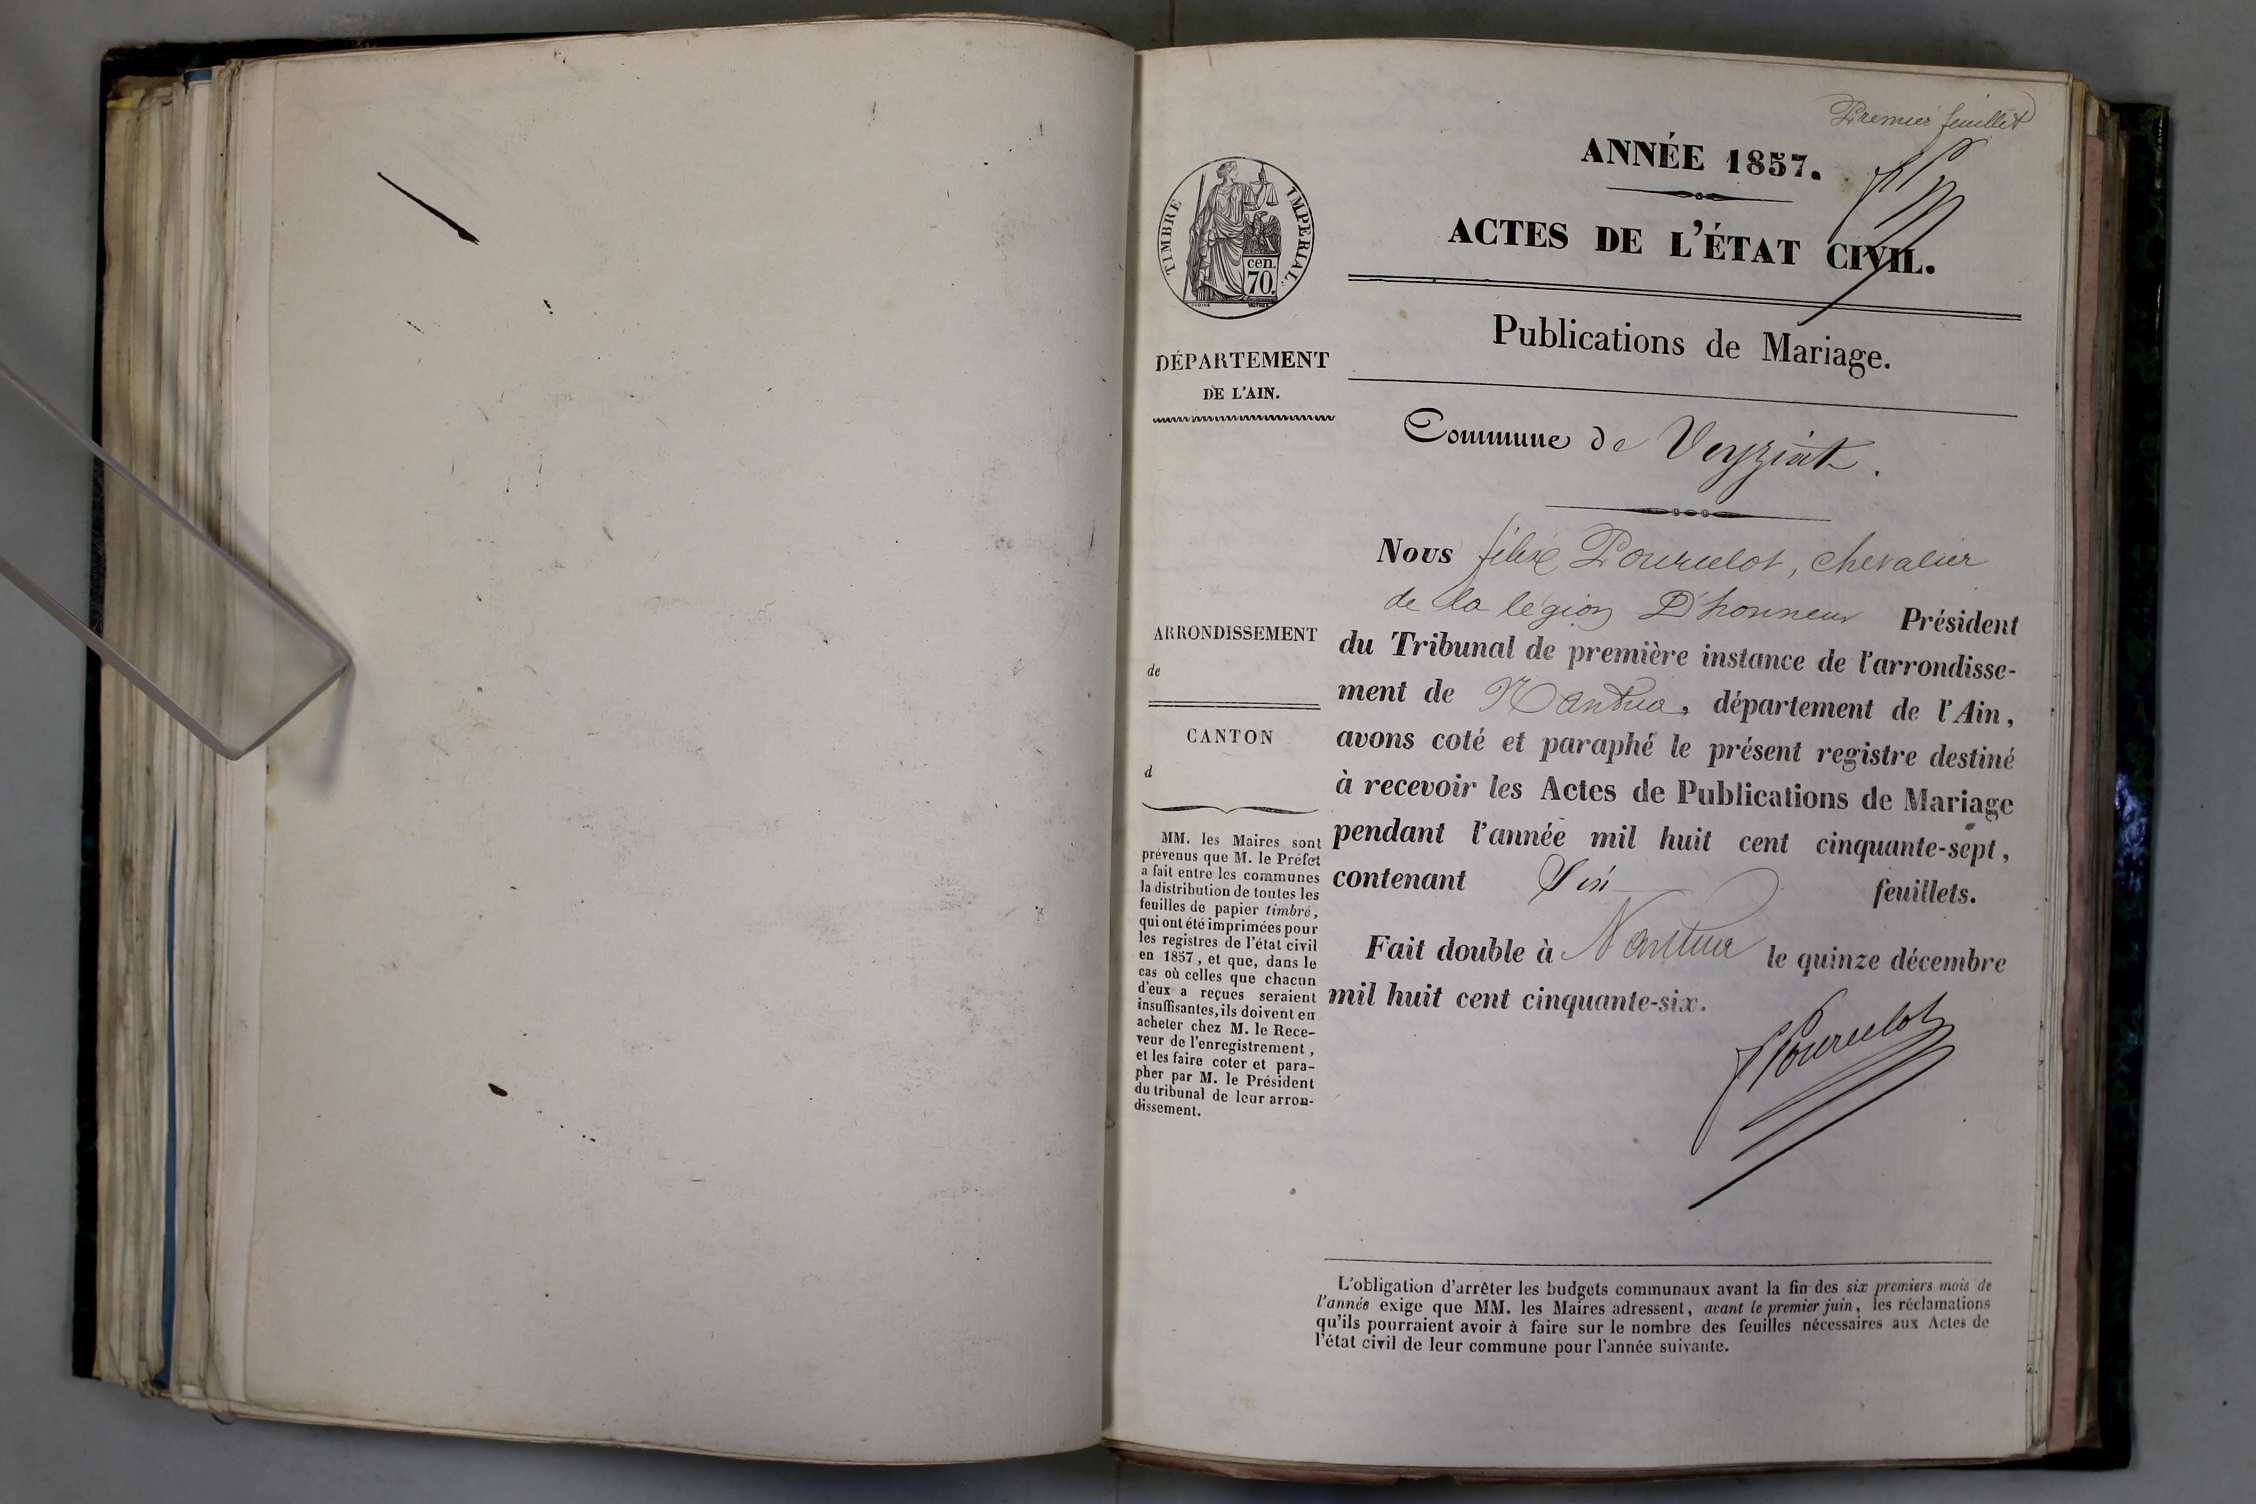 Premier feuillet
ANNÉE 1857.
ACTES DE L'ÉTAT CIVIL.
Publications de Mariage.
TIMBRE IMPERIAL.
cen.
70.
DÉPARTEMENT
DE L'AIN.
Commune de Veyziat.
ARRONDISSEMENT
de
CANTON
d
MM. les Maires sont
prévenus que M. le Préfet
a fait entre les communes
la distribution de toutes les
feuilles de papier timbré,
qui ont été imprimées pour
les registres de l'état civil
en 1857, et que, dans le
cas où celles que chacun
d'eux a reçues seraient
insuffisantes, ils doivent en
acheter chez M. le Rece-
veur de l'enregistrement,
et les faire coter et para-
pher par M. le Président
du tribunal de leur arron-
dissement.
Nous félix Pourcelot, chevalier
de la légion D'honneur Président
du Tribunal de première instance de l'arrondisse-
ment de Nantua, département de l'Ain,
avons coté et paraphé le présent registre destiné
à recevoir les Actes de Publications de Mariage
pendant l'année mil huit cent cinquante-sept,
contenant feuillets.
Fait double à Nantua le quinze décembre
mil huit cent cinquante-six.
f Pourcelot
L'obligation d'arrêter les budgets communaux avant la fin des six premiers mois de
l'année exige que MM. les Maires adressent, avant le premier juin, les réclamations
qu'ils pourraient avoir à faire sur le nombre des feuilles nécessaires aux Actes de
l'état civil de leur commune pour l'année suivante.